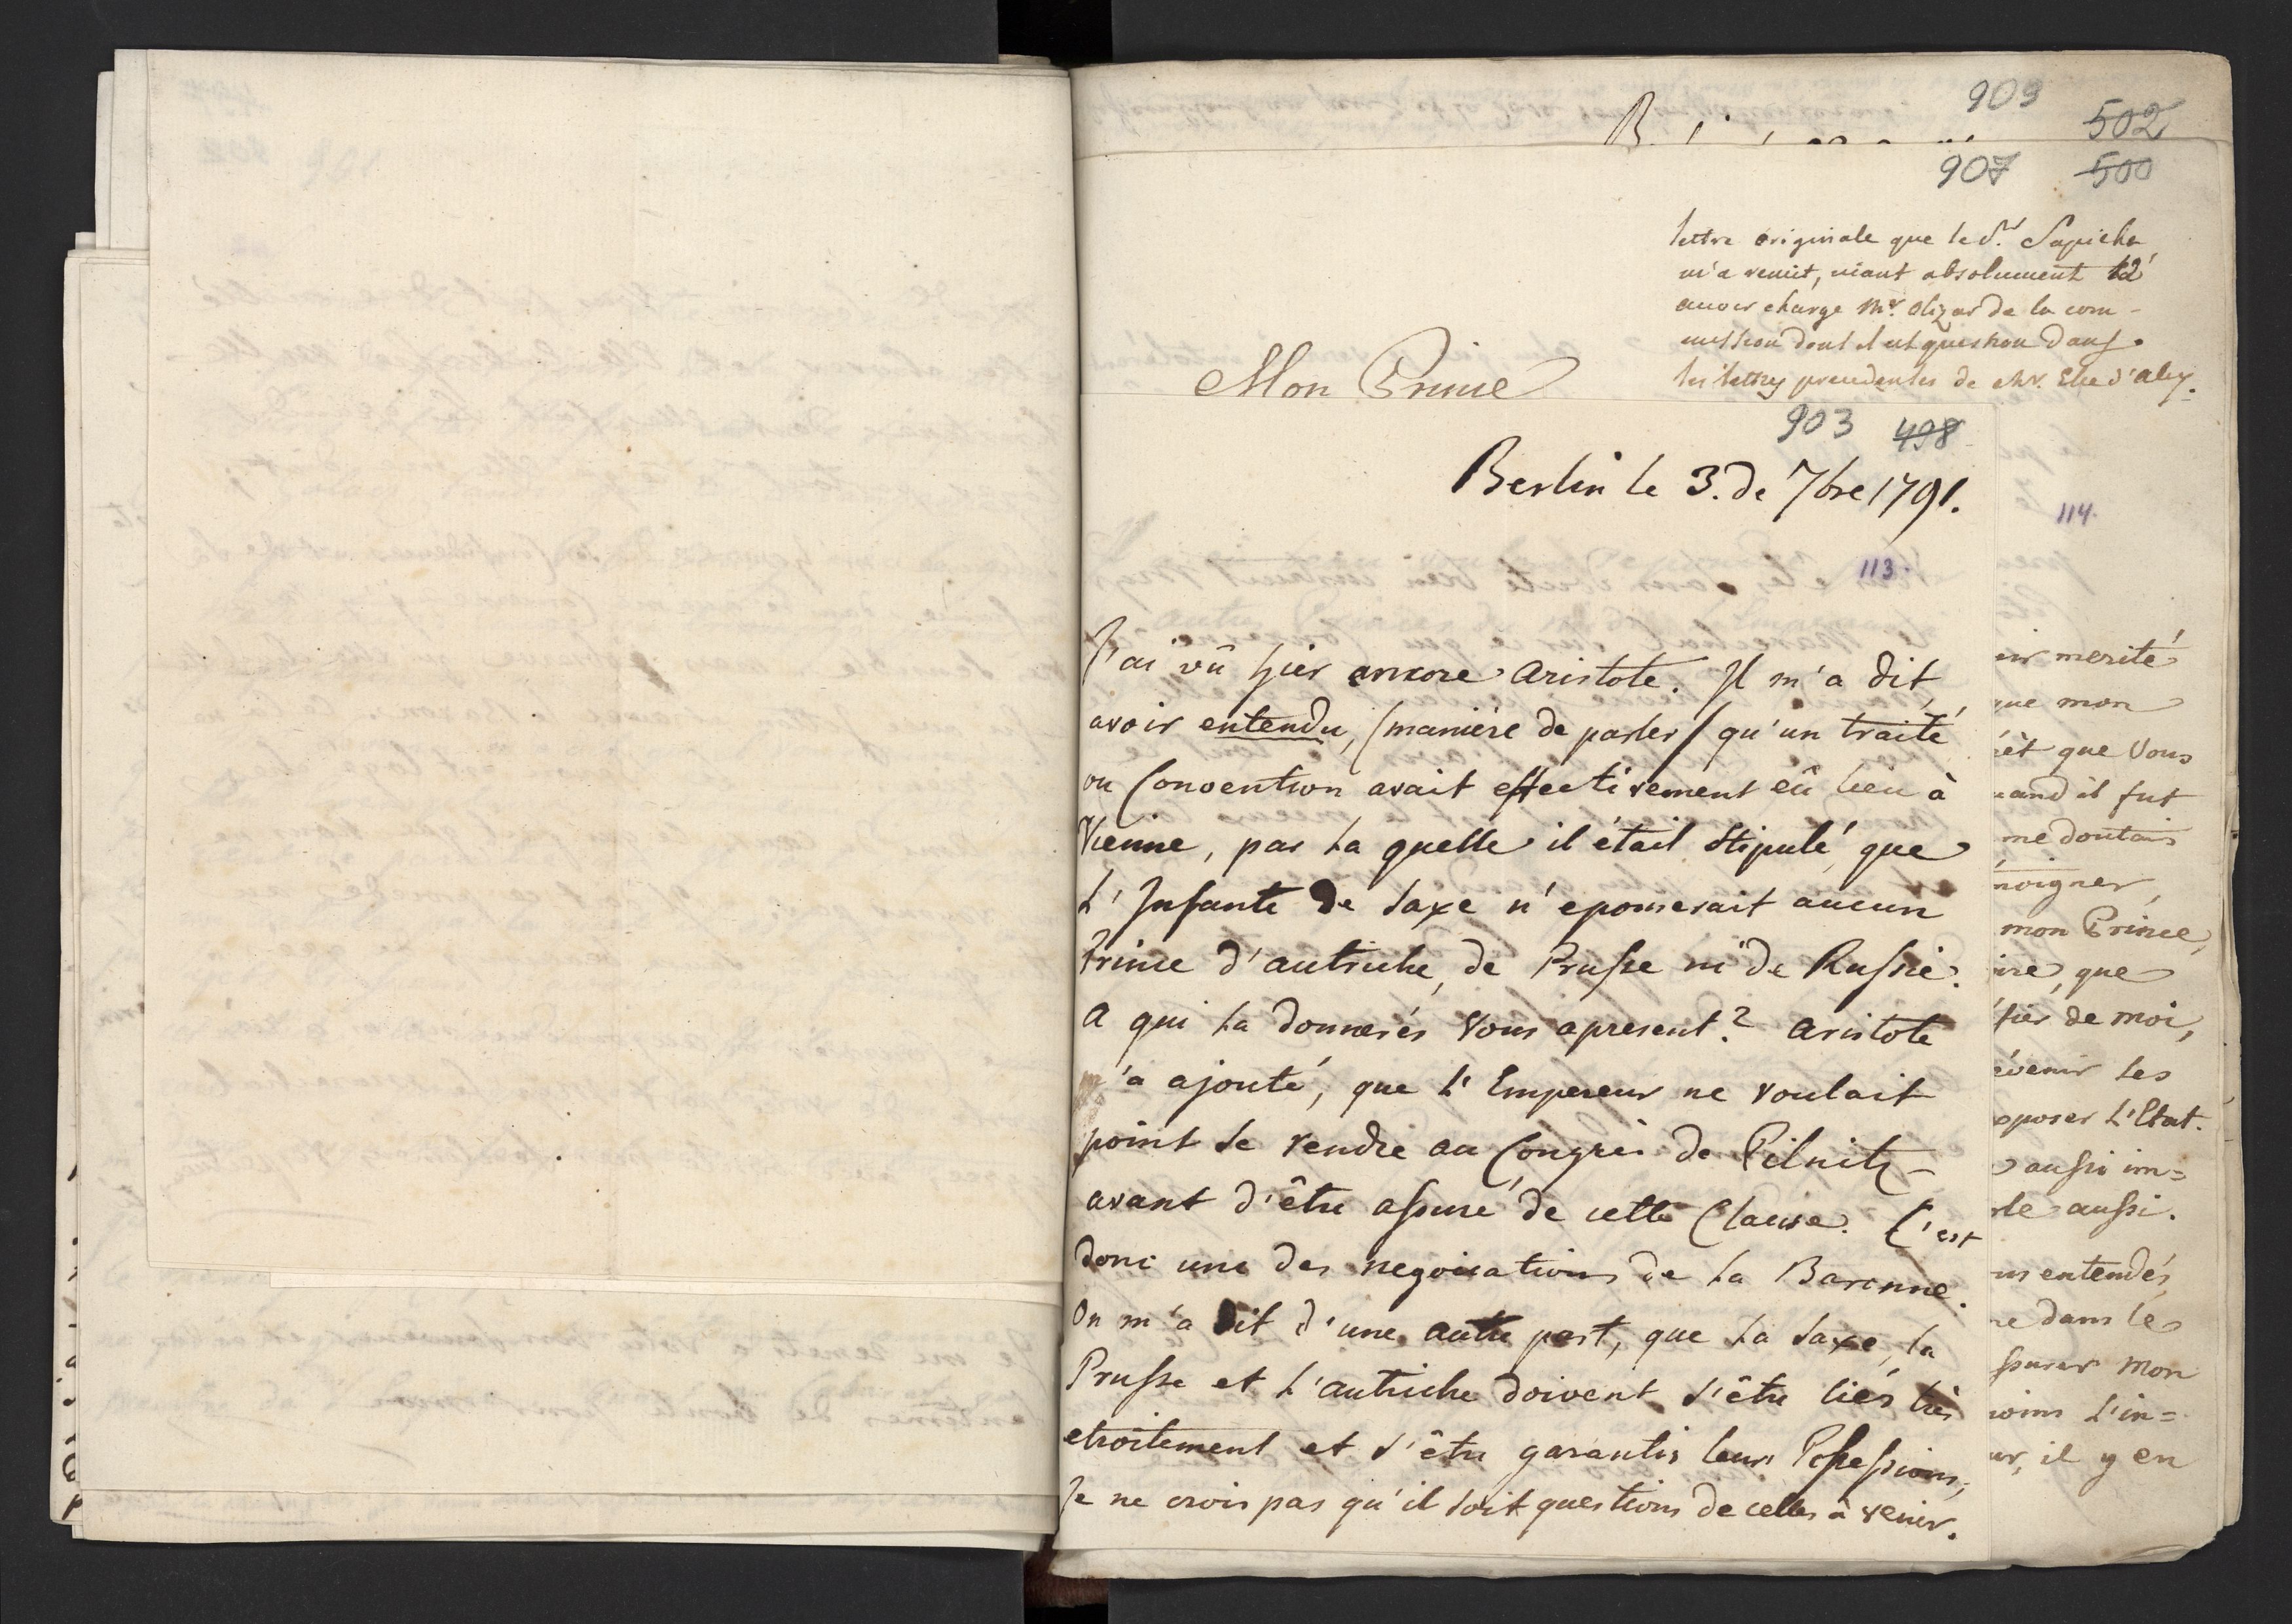 909
502
907
500
lettre originale que le Sr. Sapieha
m'a remit, niant absolument
avoir chargé Mr. Olizar de la com-
mission dont il est question dans
les lettres precedentes de chr. Elie d'Aloy.
Mon Prince
903 498
Berlin le 3. de 7bre 1791.
114.
113.
J'ai vû hier ancore Aristote. Il m'a dit,
avoir entendu, (maniére de parler) qu'un traité
ou Convention avait effectivement eû lieu à
Vienne, par la quelle il était stipulé que
l'Infante de Saxe n'epouserait aucun
Prince d'autriche, de Prusse ni de Russie.
A qui la donnerés vous apresent? Aristote
m'a ajouté, que l'Empereur ne voulait
point se rendre au Congrès de Pilnitz
avant d'être assuré de cette Clause. C'est
donc une des negociations de la Baronne.
On m'a dit d'une autre part, que la Saxe, la
Prusse et l'autriche doivent s'être liés très
etroitement et s'être garantis leurs Possessions,
Je ne crois pas qu'il soit questions de celles à venir.
oir merité
que mon
rêt que Vous
uand il fut
me doutais
moigner,
mon Prince,
ire, que
fier de moi,
évenir les
xposer L'Etat.
aussi im=
rle aussi.
us entendés,
re dans le
ssurer Mon
moins L'in=
ur, il y en